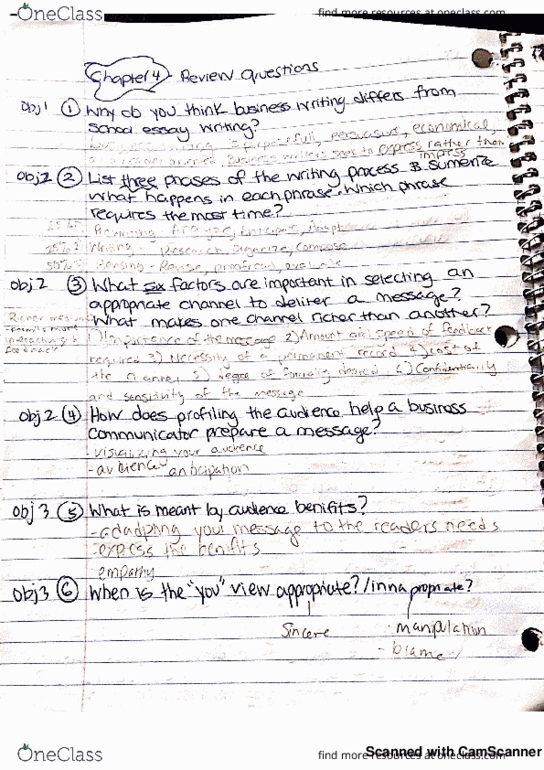 OneClass
find more resources at oneclass.com
Chapter 4 - Review Questions
Obj 1 ① Why do you think business writing differs from
school essay writing?
persuasive, economical,
Business writers seek to express rather than
impress
obj 2 ② List three phases of the writing process &
what happens in each phrase. Which phrase
requires the most time?
25% Analyze, Anticipate, Adapt
25% Writing - Research, Organize, Compose
50% Revising - Revise, proofread, evaluate
obj. 2 ③ What six factors are important in selecting an
appropriate channel to deliter a message?
What makes one channel richer than another?
Richer medium
- permits more
interactivity &
feedback
1) Importance of the message 2) Amount and speed of feedback
required 3) Necessity of a permanent record 4) cost of
the channel 5) Degree of formality desired 6) Confidentiality
and sensitivity of the message
obj 2 ④ How does profiling the audience help a business
communicator prepare a message?
- visualizing your audience
- audience anticipation
obj 3 ⑤ What is meant by audience benifits?
- adadpting your message to the readers needs
- express the benifits
empathy
obj 3 ⑥ When is the "you" view appropriate? / innapropriate?
Sincere
- manipulation
- blame
OneClass
find more resources at oneclass.com
Scanned with CamScanner